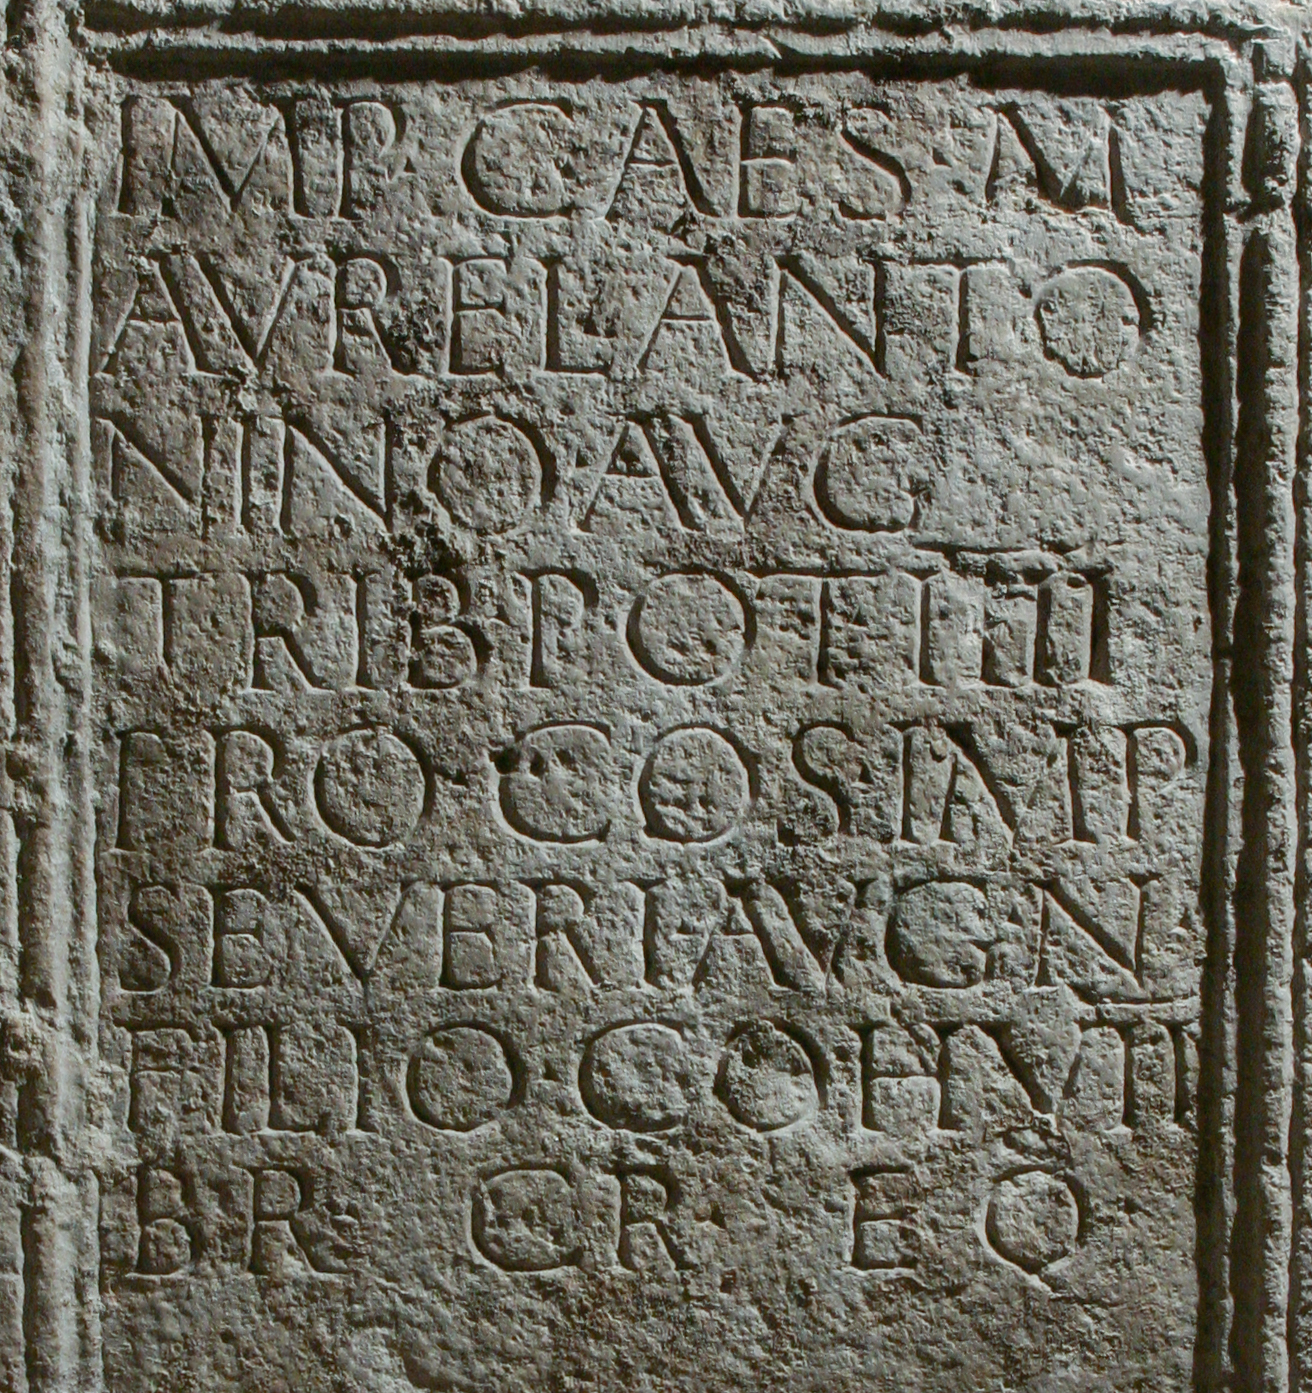 IMP·CAES·M
AVREL·ANTO
NINO·AVG
TRIB·POT·IIII
PRO·COS·IMP
SEVERI·AVG·N
FILIO·COH·VII
BR C R EQ